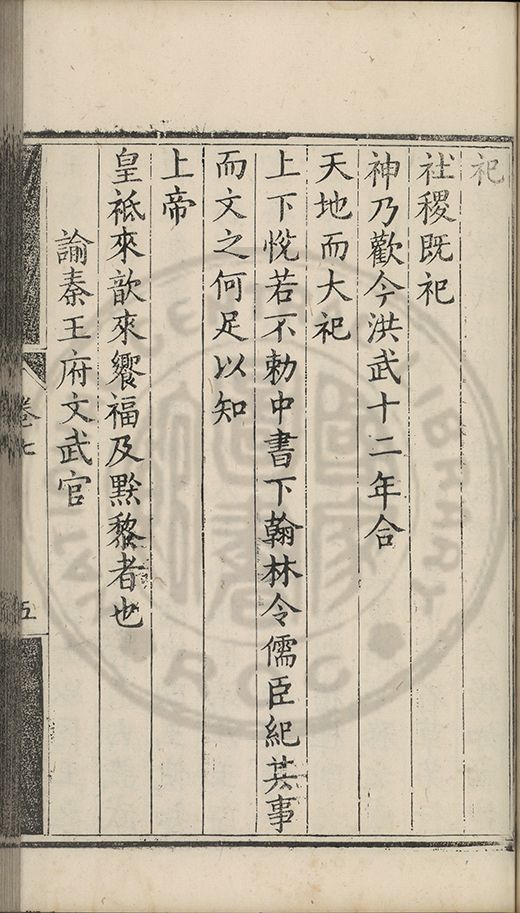 祀
社稷既祀
神乃歡今洪武十二年合
天地而大祀
上下悅若不勅中書下翰林令儒臣紀其事
而文之何足以知
上帝
皇祗來歆來饗福及黔黎者也
諭秦王府文武官
卷七
五